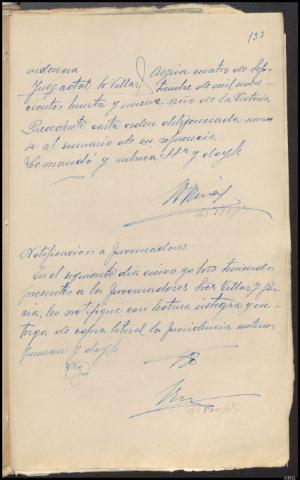 133
Juez actal Sr Villar} Arzúa cuatro de Sep-
tiembre de mil nove-
cientos treinta y nueve año de la Victoria
Precedente carta orden diligenciada
se al sumario de su referencia
Lo mandó y rubrica Sª y doy fe
Notificación a Procuradores
En el siguiente día cinco yo teniendo
presentes a los Procuradores Sres Villar y
les notifiqué con lectura íntegra y en-
trega de copia literal la providencia anterior
firman y doy fe